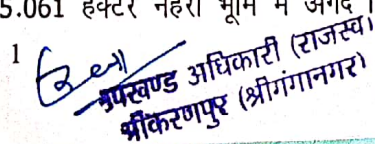 5.061 हैक्टर नहरी भूमि में
1
उपखण्ड अधिकारी (राजस्व)
श्रीकरणपुर (श्रीगंगानगर)